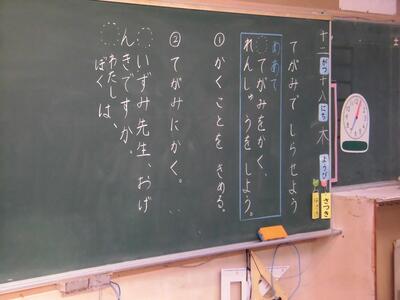 十二がつ十八にち木ようび
てがみで しらせよう
めあて
てがみをかく、
れんしゅうを しよう。
①かくことを きめる。
②てがみにかく。
いずみ先生、おげ
んきですか。
わたし
ぼく は、
さつき